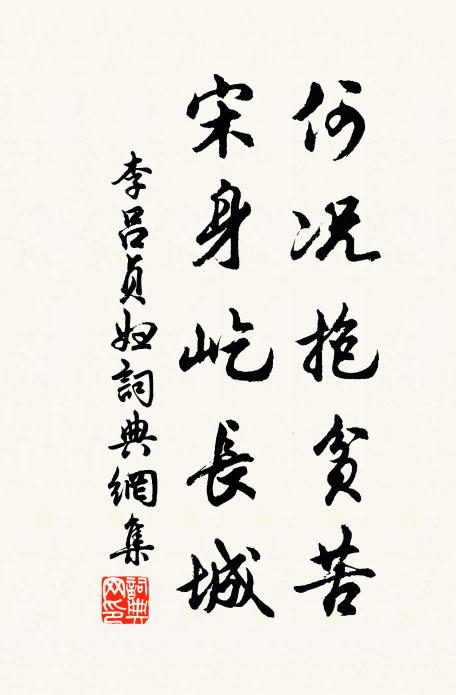 何况抱貧苦
宋身屹長城
李吕貞姬詞典網集
詞典网印